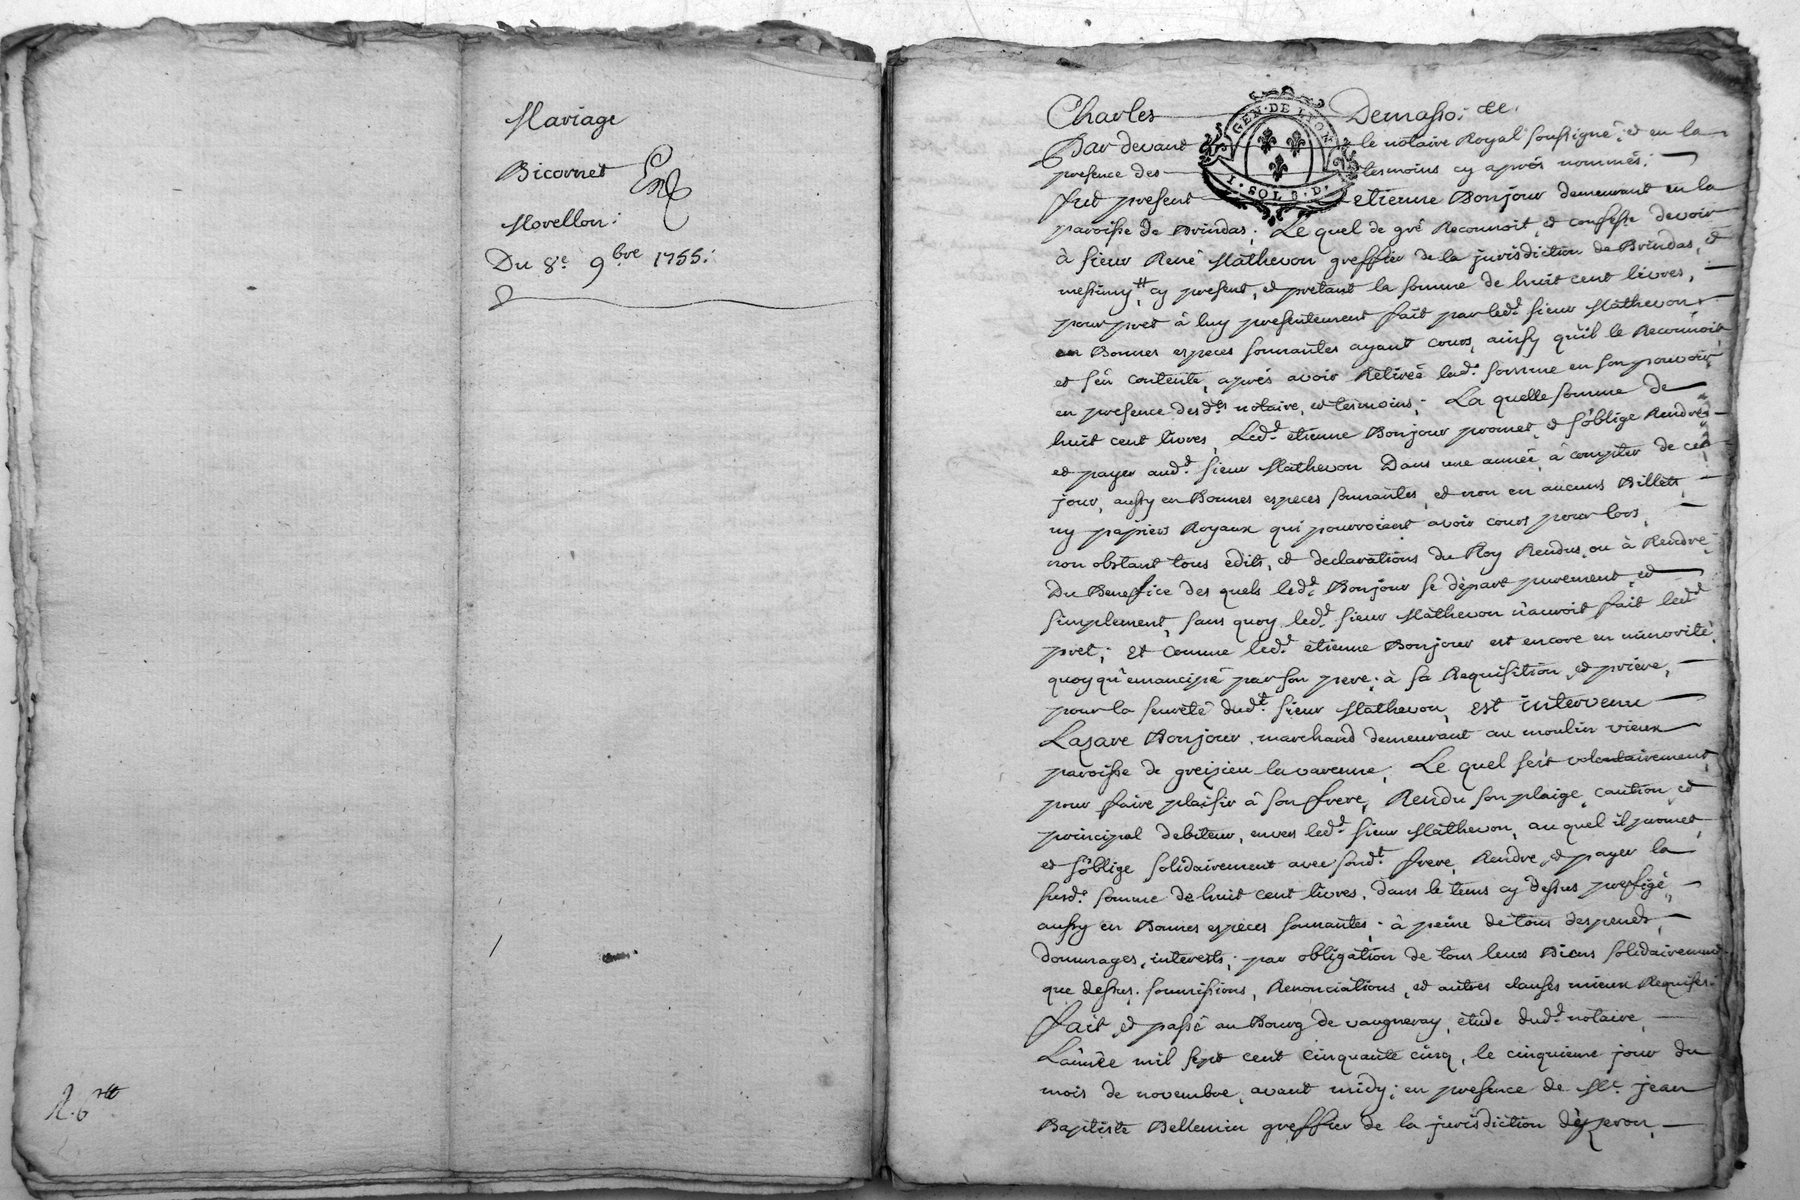 Mariage
Bicornet
Morellon:
Du 8.e 9.bre 1755:
R. 6
Charles Demasso: &c.
GEN. DE LYON
I. SOL 8. D.
Par devant le notaire Royal soussigné, et en la
presence des tesmoins cy aprés nommés:
fut present etienne Bonjour demeurant en la
paroisse de Brindas; Le quel de gré Reconnoit, et confesse devoir
à sieur René Mathevon greffier de la jurisdiction de Brindas, et
messimy, cy present, et pretant la somme de huit cent livres,
pour pret à luy presentement fait par led.t sieur Mathevon,
en Bonnes especes sonnantes ayant cours, ainsy qu'il le Reconnoit
et s'en contente, aprés avoir Retireé lad.e somme en son pouvoir,
en presence desd.ts notaire, et tesmoins; La quelle somme de
huit cent livres, Led.t etienne Bonjour promet, et s'oblige Rendre
et payer aud.t sieur Mathevon Dans une année, à compter de ce
jour, aussy en Bonnes especes sonnantes, et non en aucuns Billets,
ny papiers Royaux qui pourroient avoir cours pour lors,
non obstant tous edits, et declarations du Roy Rendus, ou à Rendre;
Du Benefice des quels led.t Bonjour se départ purement, et
simplement, sans quoy led.t sieur Mathevon n'auroit fait led.t
pret; Et comme led.t etienne Bonjour est encore en minorité,
quoy qu'emancipé par son pere; à sa Requisition, et priere,
pour la seureté dud.t sieur Mathevon, Est intervenu
Lazare Bonjour, marchand demeurant au moulin vieux
paroisse de greizieu lavarenne, Le quel s'est volontairement,
pour faire plaisir à son frere, Rendu son plaige, caution, et
principal debiteur, envers led.t sieur Mathevon, au quel il promet,
et s'oblige solidairement avec sond.t frere, Rendre, et payer la
susd.e somme de huit cent livres, dans le tems cy dessus prefigé,
aussy en Bonnes especes sonnantes; à peine de tous despends,
dommages, interests; par obligation de tous leurs Biens solidairement
que dessus, soumissions, Renonciations, et autres clauses mieux Requises:
fait, et passé au Bourg de vaugneray, étude dud.t notaire,
L'année mil sept cent cinquante cinq, le cinquieme jour du
mois de novembre, avant midy; en presence de M.e jean
Baptiste Bellemin greffier de la jurisdiction d'yzeron,